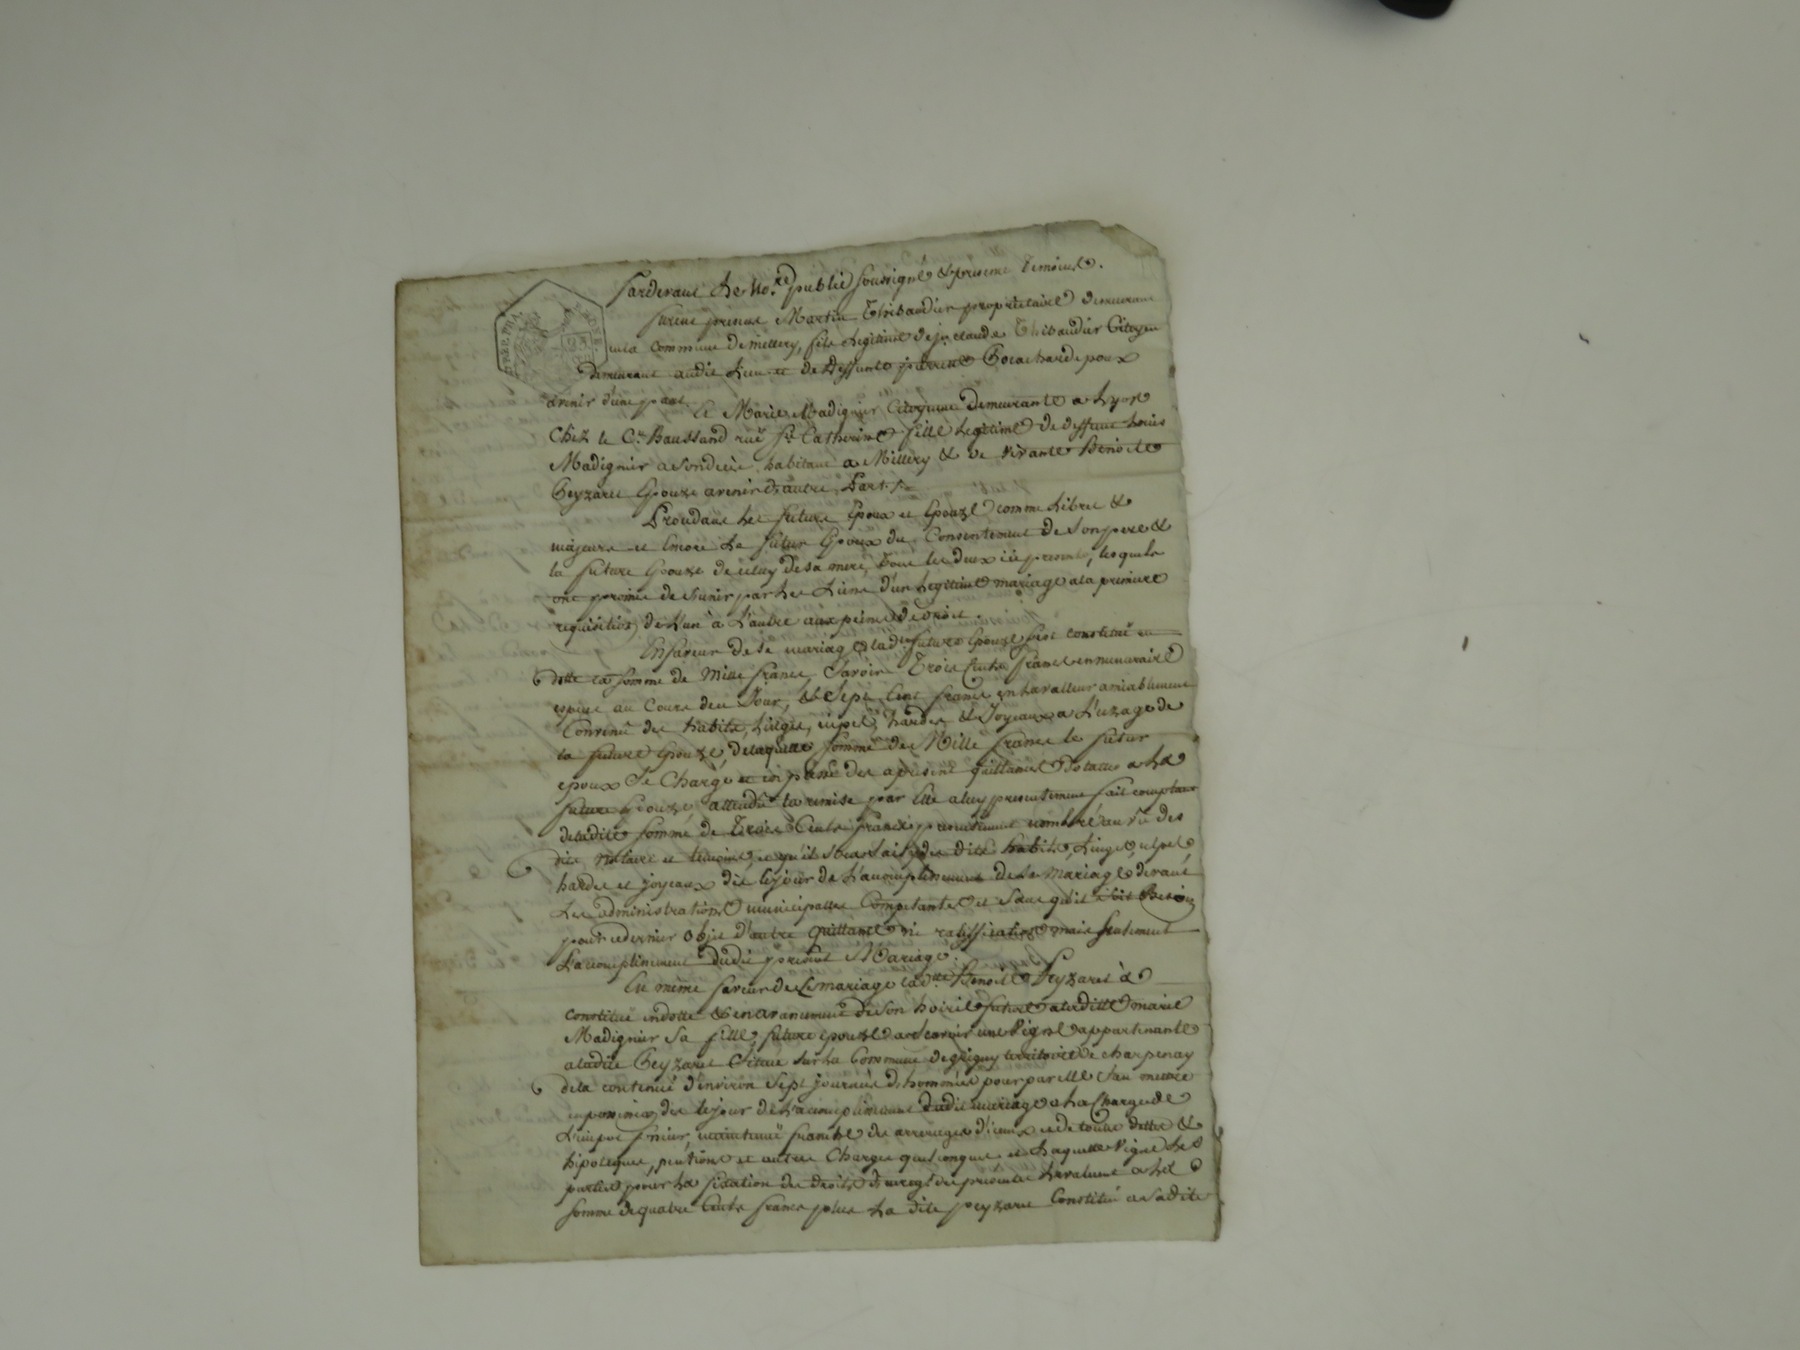 Pardevant Le No.re public soussigné & presens Temoins.
furent presens Martin Thibaudier proprietaire demeurant
en la commune de millery, fils Legitime de jn. claude Thibaudier Citoyen
demeurant audit Lieu et de deffunte pierrette epoux
avenir d'une part.
Et Marie Madignier Citoyenne demeurante a Lyon
chez le Cn. Baussand rue Ste Catherine fille Legitime de deffunt Louis
Madignier a son deces habitant a Millery & de vivante Benoite
Peyzaret Epouze avenir d'autre Part.
Procedant les future Epoux et Epouze comme Libres &
majeurs et Encore Le futur Epoux du Consentement de son pere &
la future Epouze de celuy de sa mere, tous les deux icy presents, lesquels
ont promis de s'unir par Les Liens d'un Legitime mariage a la premiere
requisition de L'un à L'autre aux peines de Droit.
En faveur de ce mariage lad.e future Epouze s'est constitué en
dotte la somme de Mille francs, Savoir Trois Cents francs en numeraire
espece au Cours de ce Jour, & Sept Cent francs en la valleur amiablement
Convenue des habits, Linges, hardes & Joyeaux a L'uzage de
la future Epouze, de laquelle somme de Mille francs le futur
epoux Se Charge et en passe des a present quittance Dotalle a La
future Epouze attendu la remise par Elle a luy presentement fait comptant
de ladite somme de Trois Cents francs presentement nombré au vu des
dits Notaire et temoins, et qu'il sera saisy des dits habits, Linges,
hardes et joyeaux dès le jour de L'accomplissement de Le mariage devant
Les administrations municipalles Competantes et sans qu'il soit Besoin
pour ce dernier objet d'autre quittance ni ratiffication mais seulement
L'accomplissement dudit present Mariage.
En même faveur de Ce mariage lad.tte Benoite Peyzaret à
constitué en dotte & en avancement de son hoirie future a laditte marie
Madignier sa fille future epouze scavoir une Vigne appartenante
a ladite Peyzaret Située sur la Commune de grigny territoire de charpenay
de la contenue d'environ sept journées d'hommées pour par elle s'en mettre
en possession des le jour de L'accomplissement dudit mariage a La Charge de
L'impot foncier, maintenue franche des arrerages d'iceux et de toutes dettes &
hipoteques, pentions et autres Charges quelconques et Laquelle Vigne les
parties pour La fixation des droits d'enregt. des presentes Evaluent a La
somme de quatre Cents francs plus La dite peyzaret Constitué a sadite